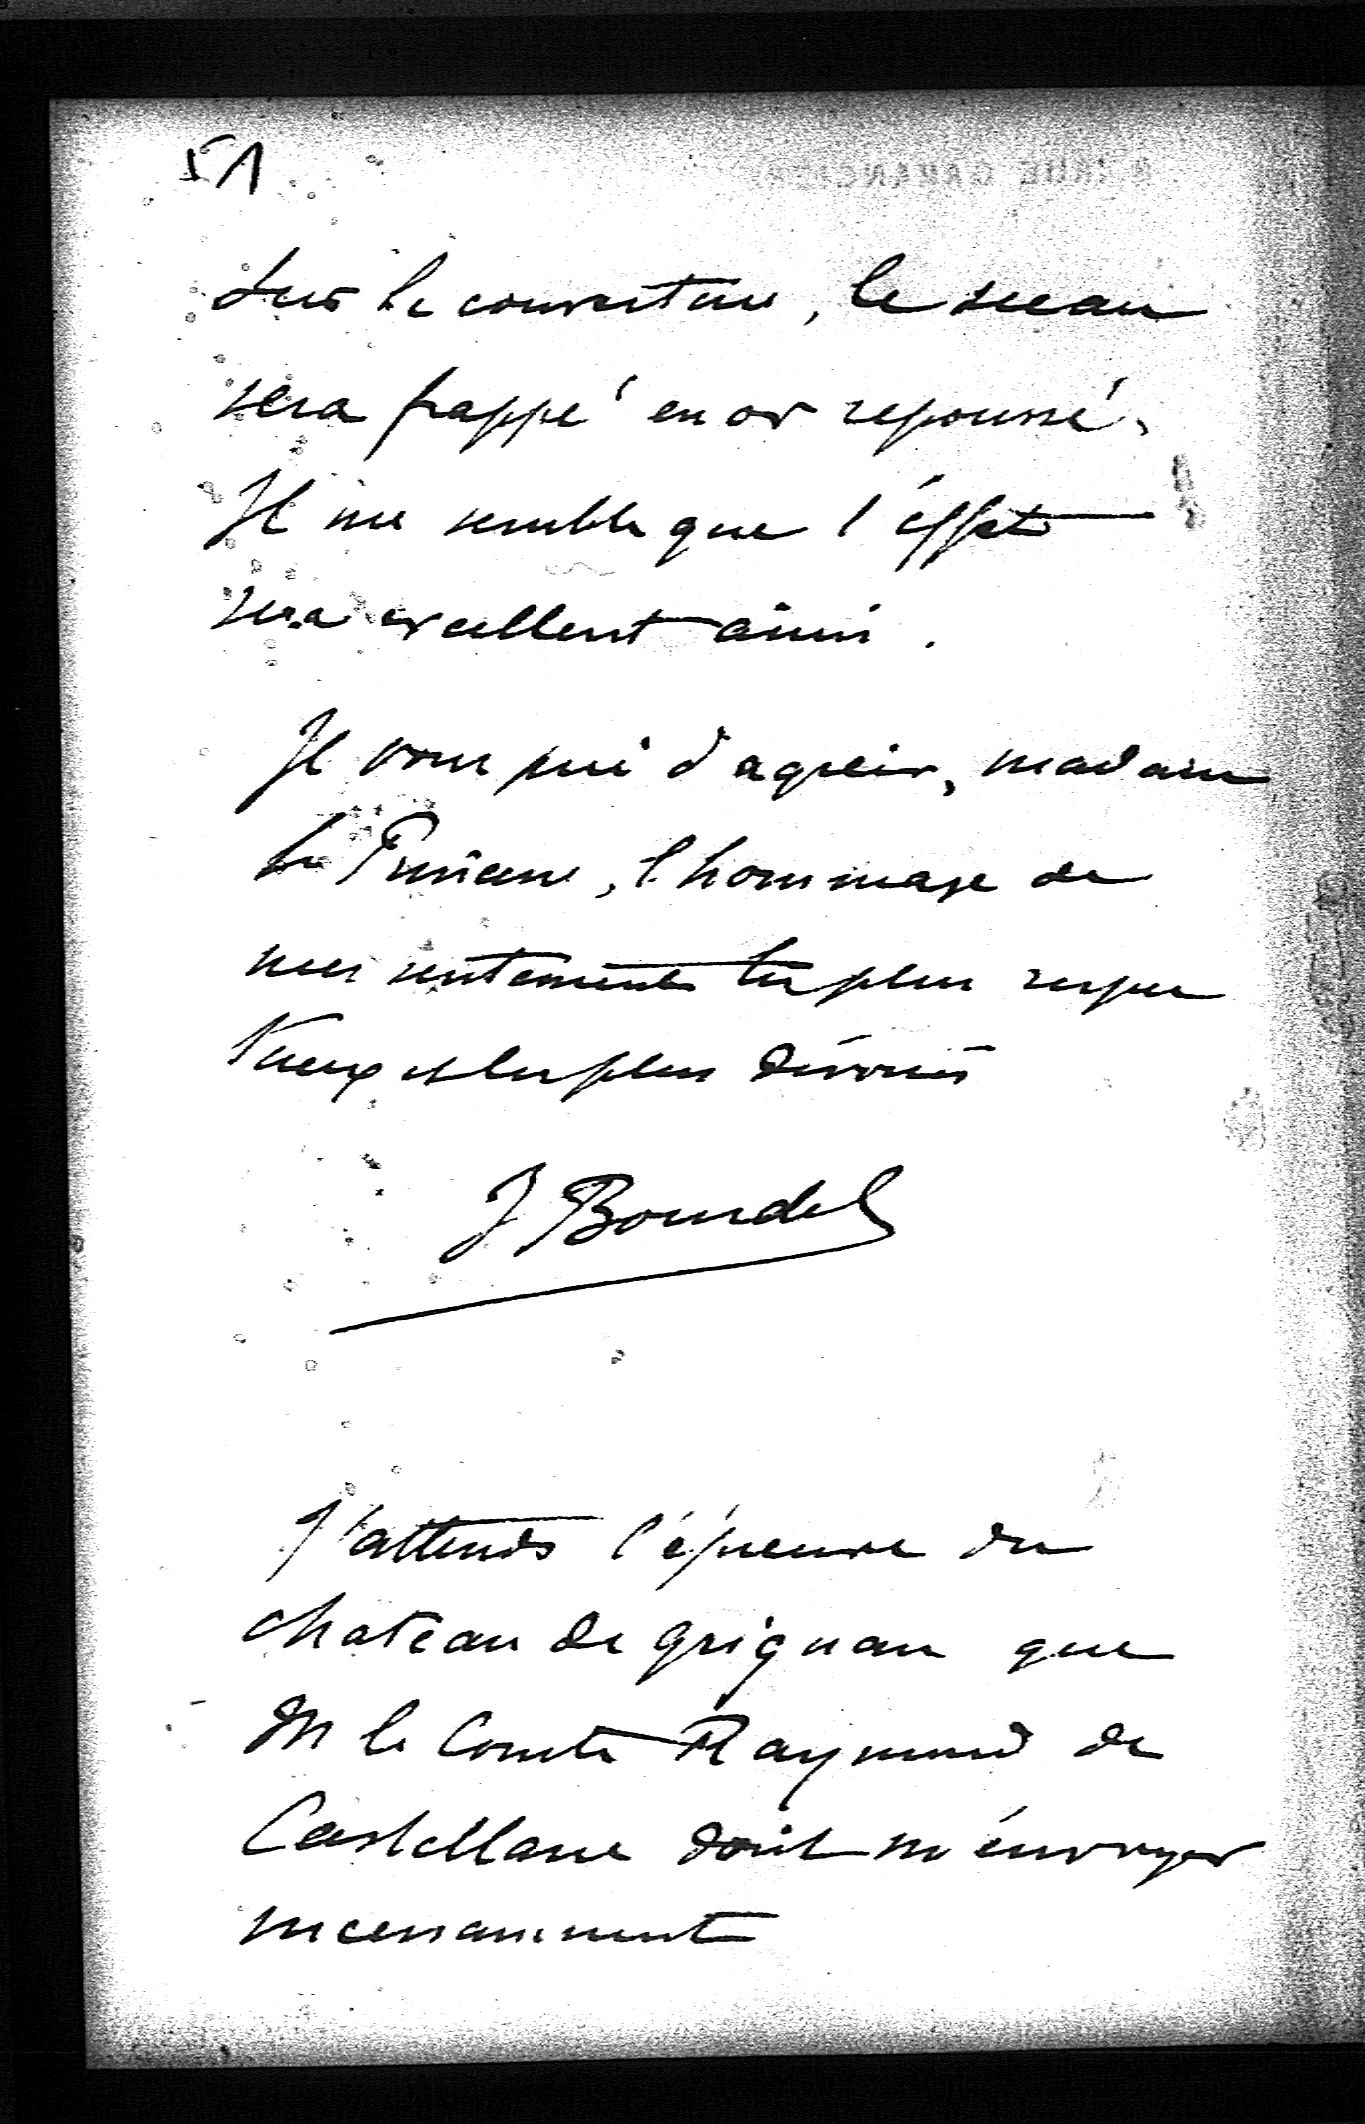 51
Sur la couverture, le sceau
sera frappé en or repoussé.
Il me semble que l'effet
sera excellent ainsi.
Je vous prie d'agréer, madame
la Princesse, l'hommage de
mes sentements les plus respec
tueux et les plus dévoués
J Bourdel
J'attends l'épreuve du
chateau de grignan que
M le Comte Raymond de
Castellane doit m'envoyer
incessamment